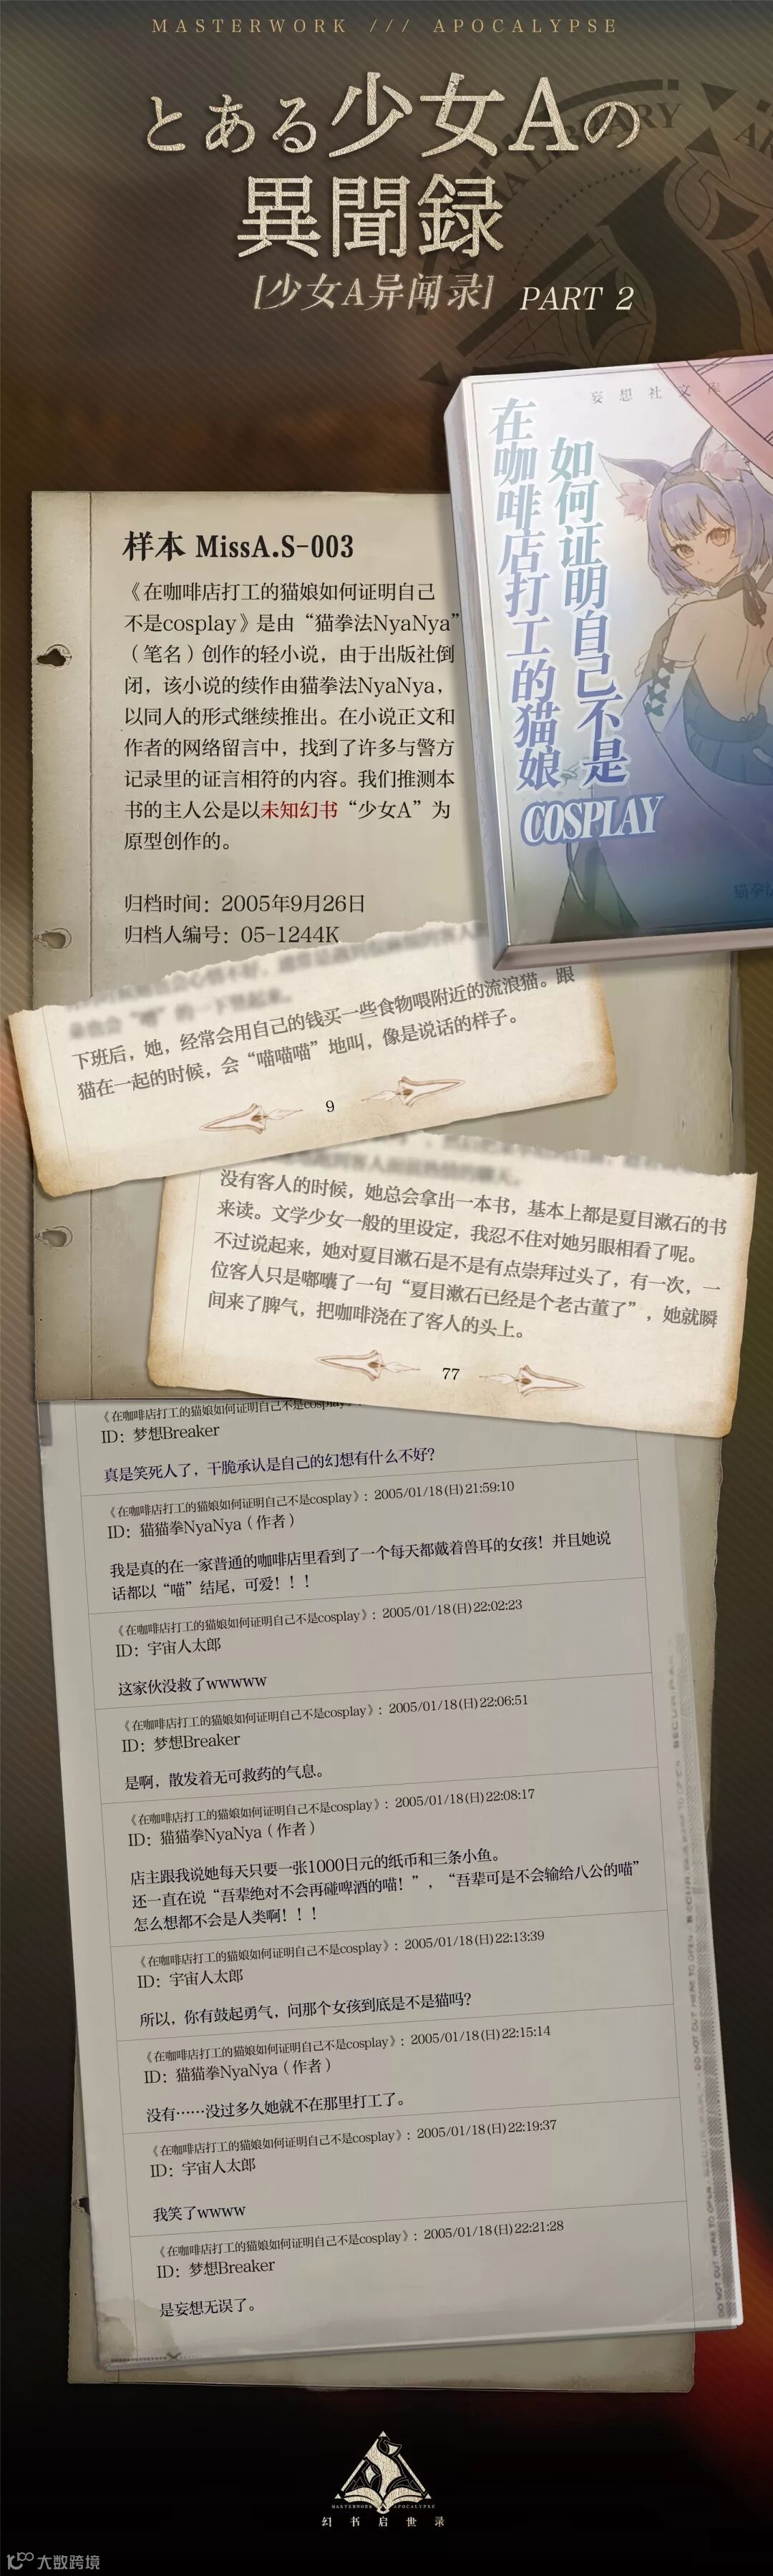 MASTERWORK /// APOCALYPSE
とある少女Aの
異聞録
[少女A异闻录] PART 2
妄想社文库
在咖啡店打工的猫娘
如何证明自己不是
COSPLAY
样本 MissA.S-003
《在咖啡店打工的猫娘如何证明自己
不是cosplay》是由“猫拳法NyaNya”
（笔名）创作的轻小说，由于出版社倒
闭，该小说的续作由猫拳法NyaNya，
以同人的形式继续推出。在小说正文和
作者的网络留言中，找到了许多与警方
记录里的证言相符的内容。我们推测本
书的主人公是以未知幻书“少女A”为
原型创作的。
归档时间：2005年9月26日
归档人编号：05-1244K
下班后，她，经常会用自己的钱买一些食物喂附近的流浪猫。跟
猫在一起的时候，会“喵喵喵”地叫，像是说话的样子。
9
没有客人的时候，她总会拿出一本书，基本上都是夏目漱石的书
来读。文学少女一般的里设定，我忍不住对她另眼相看了呢。
不过说起来，她对夏目漱石是不是有点崇拜过头了，有一次，一
位客人只是嘟囔了一句“夏目漱石已经是个老古董了”，她就瞬
间来了脾气，把咖啡浇在了客人的头上。
77
《在咖啡店打工的猫娘如何证明自己不是cosplay
ID：梦想Breaker
真是笑死人了，干脆承认是自己的幻想有什么不好？
《在咖啡店打工的猫娘如何证明自己不是cosplay》：2005/01/18(日)21:59:10
ID：猫猫拳NyaNya（作者）
我是真的在一家普通的咖啡店里看到了一个每天都戴着兽耳的女孩！并且她说
话都以“喵”结尾，可爱！！！
《在咖啡店打工的猫娘如何证明自己不是cosplay》：2005/01/18(日)22:02:23
ID：宇宙人太郎
这家伙没救了wwwww
《在咖啡店打工的猫娘如何证明自己不是cosplay》：2005/01/18(日)22:06:51
ID：梦想Breaker
是啊，散发着无可救药的气息。
《在咖啡店打工的猫娘如何证明自己不是cosplay》：2005/01/18(日)22:08:17
ID：猫猫拳NyaNya（作者）
店主跟我说她每天只要一张1000日元的纸币和三条小鱼。
还一直在说“吾辈绝对不会再碰啤酒的喵！”，“吾辈可是不会输给八公的喵”
怎么想都不会是人类啊！！！
《在咖啡店打工的猫娘如何证明自己不是cosplay》：2005/01/18(日)22:13:39
ID：宇宙人太郎
所以，你有鼓起勇气，问那个女孩到底是不是猫吗？
《在咖啡店打工的猫娘如何证明自己不是cosplay》：2005/01/18(日)22:15:14
ID：猫猫拳NyaNya（作者）
没有……没过多久她就不在那里打工了。
《在咖啡店打工的猫娘如何证明自己不是cosplay》：2005/01/18(日)22:19:37
ID：宇宙人太郎
我笑了wwww
《在咖啡店打工的猫娘如何证明自己不是cosplay》：2005/01/18(日)22:21:28
ID：梦想Breaker
是妄想无误了。
MASTERWORK APOCALYPSE
幻书启世录
大数跨境